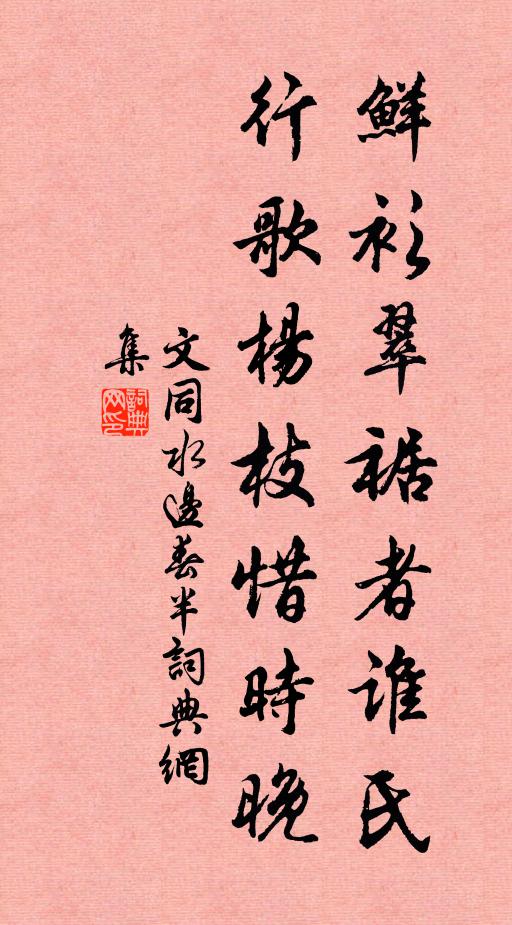 鮮衫翠裾者誰氏
行歌楊枝惜時晚
文同水邊春半詞典網
集
詞典網印